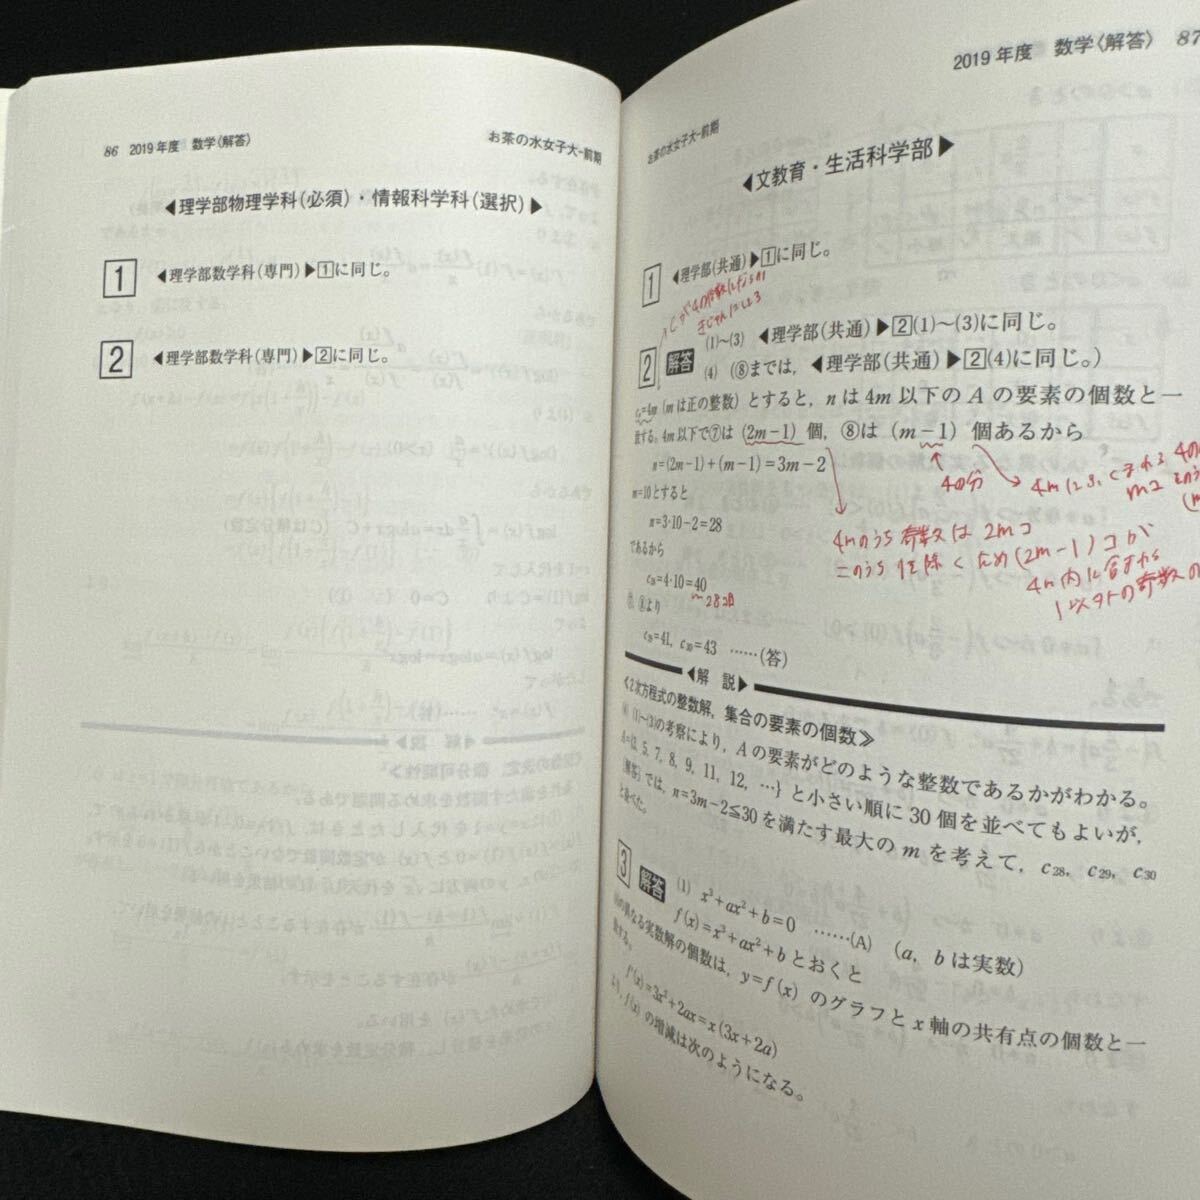 86 2019年度 数学〈解答〉
お茶の水女子大-前期
◀理学部物理学科(必須)・情報科学科(選択)▶
1 ◀理学部数学科(専門)▶1に同じ。
2 ◀理学部数学科(専門)▶2に同じ。
お茶の水女子大-前期
2019年度 数学〈解答〉 87
◀文教育・生活科学部▶
1 ◀理学部(共通)▶1に同じ。
2 解答 (1)~(3) ◀理学部(共通)▶2(1)~(3)に同じ。
(4) (⑧までは,◀理学部(共通)▶2(4)に同じ。)
=4m (mは正の整数) とすると,nは4m以下のAの要素の個数と一
致する。4m以下で⑦は (2m-1) 個,⑧は (m-1) 個あるから
n=(2m-1)+(m-1)=3m-2
4の分
m=10とすると
n=3・10-2=28
4mのうち奇数は2mコ
このうち1を除くため(2m-1)コが
であるから
c28=4・10=40
1以外の奇数の
より
c29=41, c30=43 ……(答)
◀解 説▶
≪2次方程式の整数解,集合の要素の個数≫
(1)~(3)の考察により,Aの要素がどのような整数であるかがわかる。
A={3, 5, 7, 8, 9, 11, 12, …} と小さい順に30個を並べてもよいが,
〔解答〕では,n=3m-2≦30を満たす最大のmを考えて,c28, c29, c30
を調べた。
3 解答 (1) x³+ax²+b=0 ……(A) (a, bは実数)
f(x)=x³+ax²+bとおくと
の異なる実数解の個数は,y=f(x) のグラフとx軸の共有点の個数と一
致する。
f'(x)=3x²+2ax=x(3x+2a)
より,f(x) の増減は次のようになる。